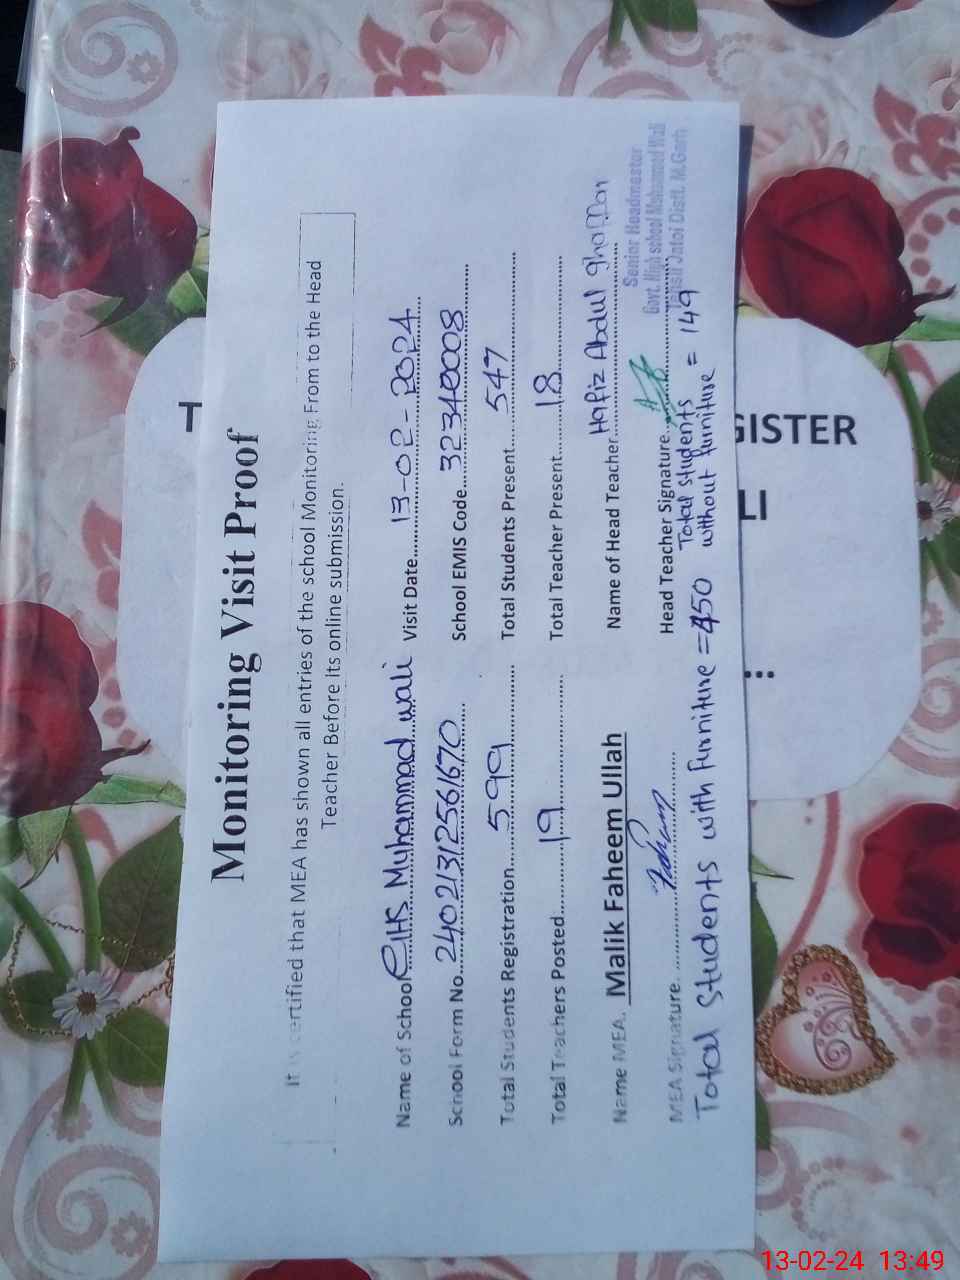 Monitoring Visit Proof
It is certified that MEA has shown all entries of the school Monitoring From to the Head
Teacher Before its online submission.
Name of School GHS Muhammad wali Visit Date 13-02-2024
School Form No. 24021312561670 School EMIS Code 32340008
Total Students Registration 599 Total Students Present 547
Total Teachers Posted 19 Total Teacher Present 18
Name MEA. Malik Faheem Ullah Name of Head Teacher Hafiz Abdul Ghaffar
MEA Signature. Faheem Head Teacher Signature
Senior Headmaster
Govt. High school Mohammad Wali
Tehsil Jatoi Distt. M.Garh
Total Students with furniture = 450
Total students
without furniture = 149
T
GISTER
LI
...
13-02-24 13:49